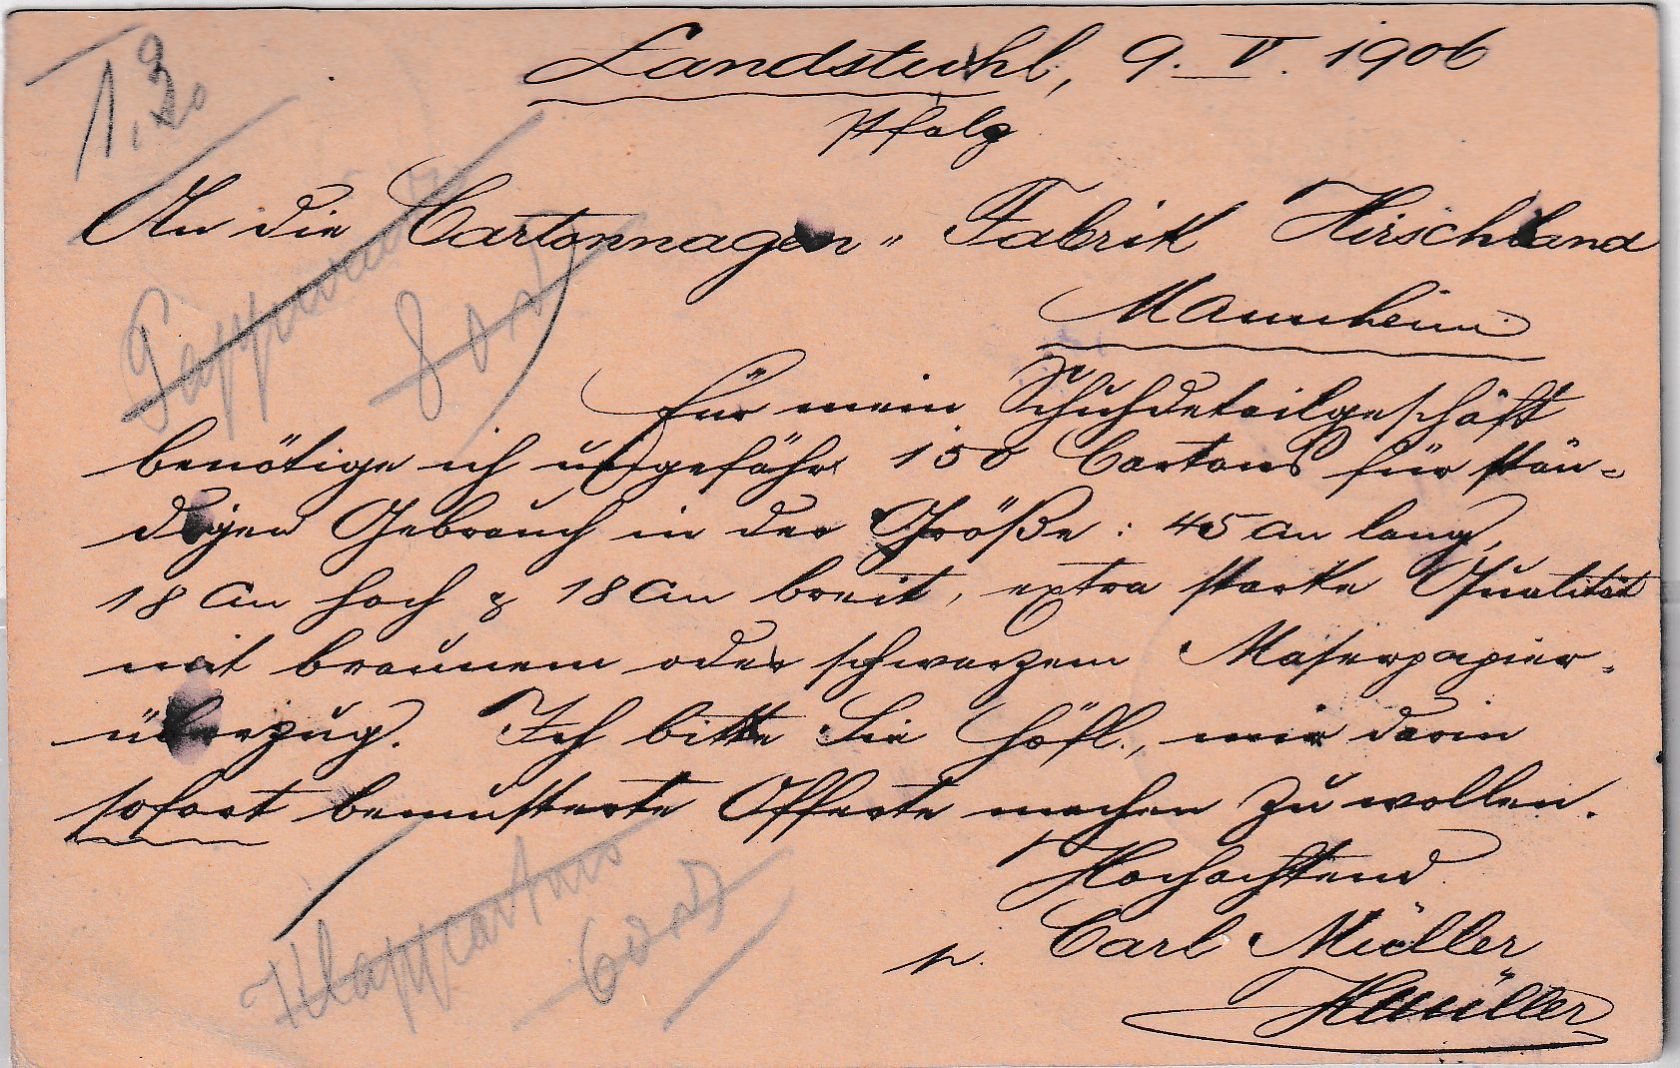 Landstuhl, 9. V. 1906
Pfalz
An die Cartonnagen-Fabrik Hirschland
Mannheim
Für mein Schuhdetailgeschäft
benötige ich ungefähr 150 Cartons für stän-
digen Gebrauch in der Größe: 45 cm lang,
18 cm hoch & 18 cm breit, extra starke Qualität
mit braunem oder schwarzem Maserpapier-
überzug. Ich bitte Sie höfl., mir darin
sofort bemusterte Offerte machen zu wollen.
Hochachtend
p. Carl Müller
HMüller